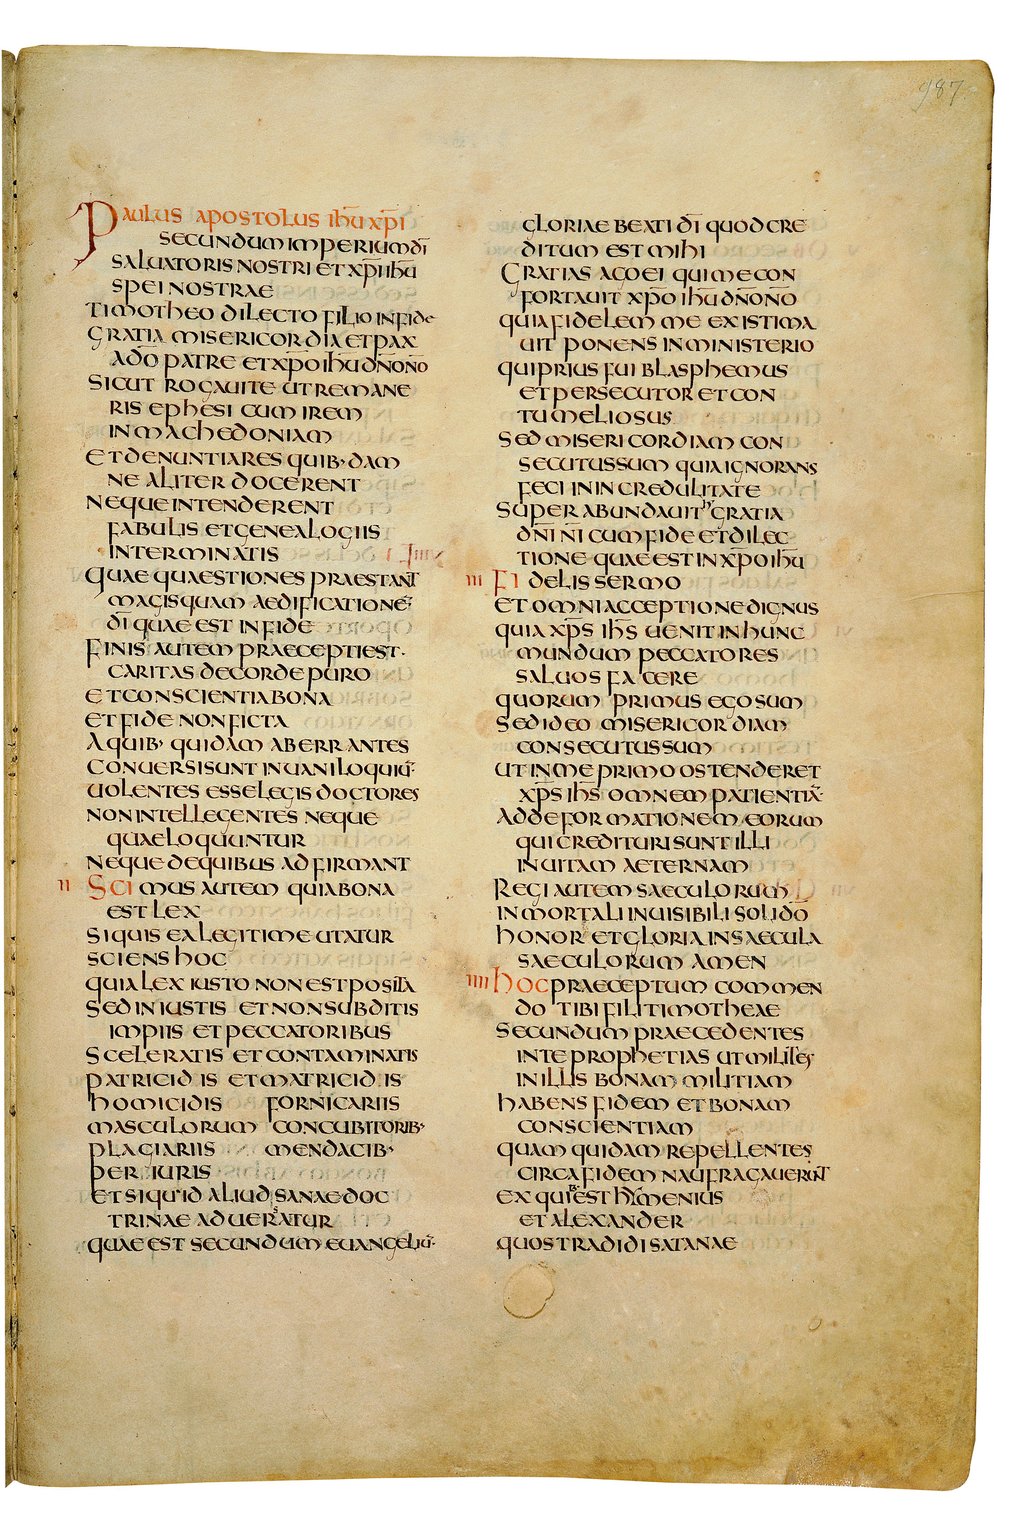 987
PAULUS APOSTOLUS IHU XPI
SECUNDUM IMPERIUM DI
SALUATORIS NOSTRI ET XPI IHU
SPEI NOSTRAE
TIMOTHEO DILECTO FILIO IN FIDE
GRATIA MISERICORDIA ET PAX
A DO PATRE ET XPO IHU DNO NO
SICUT ROGAUI TE UT REMANE
RIS EPHESI CUM IREM
IN MACHEDONIAM
ET DENUNTIARES QUIB· DAM
NE ALITER DOCERENT
NEQUE INTENDERENT
FABULIS ET GENEALOGIIS
INTERMINATIS
QUAE QUAESTIONES PRAESTANT
MAGIS QUAM AEDIFICATIONE
DI QUAE EST IN FIDE
FINIS AUTEM PRAECEPTI EST·
CARITAS DE CORDE PURO
ET CONSCIENTIA BONA
ET FIDE NON FICTA
A QUIB· QUIDAM ABERRANTES
CONUERSI SUNT IN UANILOQUIU
UOLENTES ESSE LEGIS DOCTORES
NON INTELLEGENTES NEQUE
QUAE LOQUUNTUR
NEQUE DE QUIBUS ADFIRMANT
II SCIMUS AUTEM QUIA BONA
EST LEX
SI QUIS EA LEGITIME UTATUR
SCIENS HOC
QUIA LEX IUSTO NON EST POSITA
SED INIUSTIS ET NON SUBDITIS
IMPIIS ET PECCATORIBUS
SCELERATIS ET CONTAMINATIS
PATRICIDIS ET MATRICIDIS
HOMICIDIS FORNICARIIS
MASCULORUM CONCUBITORIB·
PLAGIARIIS MENDACIB·
PERIURIS
ET SI QUID ALIUD SANAE DOC
TRINAE ADUERSATUR
QUAE EST SECUNDUM EUANGELIU
GLORIAE BEATI DI QUOD CRE
DITUM EST MIHI
GRATIAS AGO EI QUI ME CON
FORTAUIT XPO IHU DNO NO
QUIA FIDELEM ME EXISTIMA
UIT PONENS IN MINISTERIO
QUI PRIUS FUI BLASPHEMUS
ET PERSECUTOR ET CON
TUMELIOSUS
SED MISERICORDIAM CON
SECUTUS SUM QUIA IGNORANS
FECI IN INCREDULITATE
SUPERABUNDAUIT H GRATIA
DNI NI CUM FIDE ET DILEC
TIONE QUAE EST IN XPO IHU
III FIDELIS SERMO
ET OMNI ACCEPTIONE DIGNUS
QUIA XPS IHS UENIT IN HUNC
MUNDUM PECCATORES
SALUOS FACERE
QUORUM PRIMUS EGO SUM
SED IDEO MISERICORDIAM
CONSECUTUS SUM
UT IN ME PRIMO OSTENDERET
XPS IHS OMNEM PATIENTIA
AD DEFORMATIONEM EORUM
QUI CREDITURI SUNT ILLI
IN UITAM AETERNAM
REGI AUTEM SAECULORUM
INMORTALI INUISIBILI SOLI DO
HONOR ET GLORIA IN SAECULA
SAECULORUM AMEN
IIII HOC PRAECEPTUM COMMEN
DO TIBI FILI TIMOTHEAE
SECUNDUM PRAECEDENTES
IN TE PROPHETIAS UT MILITES
IN ILLIS BONAM MILITIAM
HABENS FIDEM ET BONAM
CONSCIENTIAM
QUAM QUIDAM REPELLENTES
CIRCA FIDEM NAUFRAGAUERUNT
EX QUIB· EST HYMENIUS
ET ALEXANDER
QUOS TRADIDI SATANAE